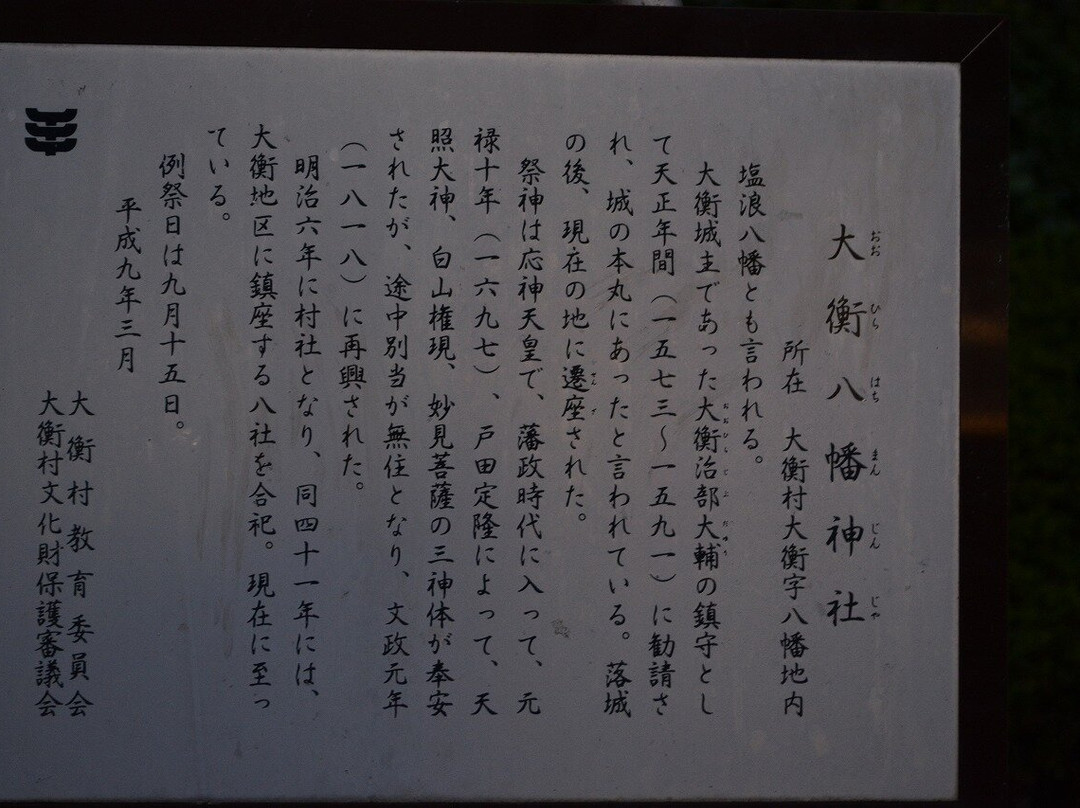 大衡八幡神社
おおひらはちまんじんじゃ
所在　大衡村大衡字八幡地内
塩浪八幡とも言われる。
大衡城主であった大衡治部大輔の鎮守とし
て天正年間（一五七三～一五九一）に勧請さ
れ、城の本丸にあったと言われている。落城
の後、現在の地に遷座された。
祭神は応神天皇で、藩政時代に入って、元
禄十年（一六九七）、戸田定隆によって、天
照大神、白山権現、妙見菩薩の三神体が奉安
されたが、途中別当が無住となり、文政元年
（一八一八）に再興された。
明治六年に村社となり、同四十一年には、
大衡地区に鎮座する八社を合祀。現在に至っ
ている。
例祭日は九月十五日。
平成九年三月
大衡村教育委員会
大衡村文化財保護審議会